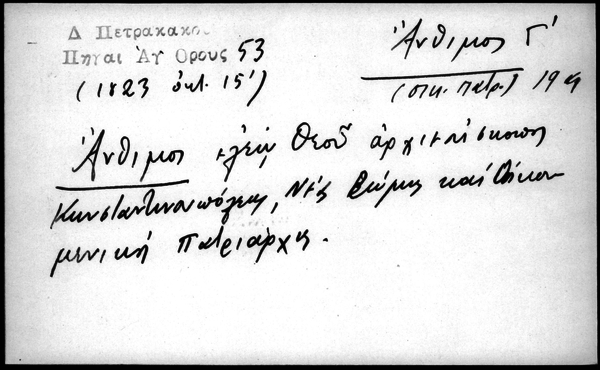 Δ Πετρακακο
Πηγαι Ἁγ Ορους 53
(1823 ὀκτ. 15')
Ἄνθιμος Γ'
(οἰκ. πατρ.) 19ος
Ἄνθιμος ἐλέῳ Θεοῦ ἀρχιεπίσκοπος
Κωνσταντινουπόλεως, Νέας Ρώμης καὶ Οἰκου-
μενικὸς Πατριάρχης.